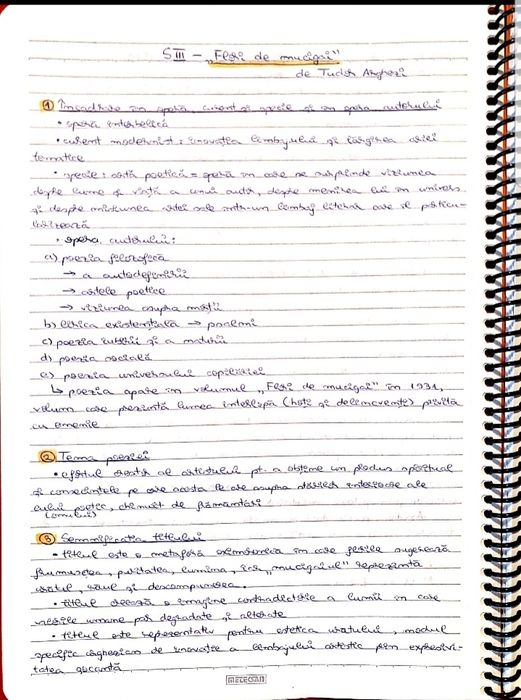 SIII – „Flori de mucigai"
de Tudor Arghezi
① Încadrare în operă, curent și specie și în opera autorului
• operă interbelică
• curent modernist: inovația limbajului și lărgirea ariei
tematice
• specie: artă poetică = operă în care se surprinde viziunea
despre lume și viață a unui autor, despre menirea lui în univers
și despre misiunea artei sale într-un limbaj literar care îl particu-
larizează
• opera autorului:
a) poezia filozofică
→ a autodefinirii
→ artele poetice
→ viziunea asupra morții
b) lirica existențială → psalmi
c) poezia iubirii și a naturii
d) poezia socială
e) poezia universului copilăriei
↳ poezia apare în volumul „Flori de mucigai" în 1931,
volum care prezintă lumea interlopă (hoți și delincvenți) privită
cu omenie
② Tema poeziei
• efortul creator al artistului pt. a obține un produs spiritual
și consecințele pe care acesta le are asupra stărilor interioare ale
eului poetic, chinuit de frământări
(omului)
③ Semnificația titlului
• titlul este o metaforă oximoronică în care florile sugerează
frumusețea, puritatea, lumina, iar „mucigaiul" reprezintă
urâtul, răul și descompunerea.
• titlul creează o imagine contradictorie a lumii în care
valorile umane par degradate și alterate
• titlul este reprezentativ pentru estetica urâtului, modul
specific arghezian de inovație a limbajului artistic prin expresivi-
tatea șocantă